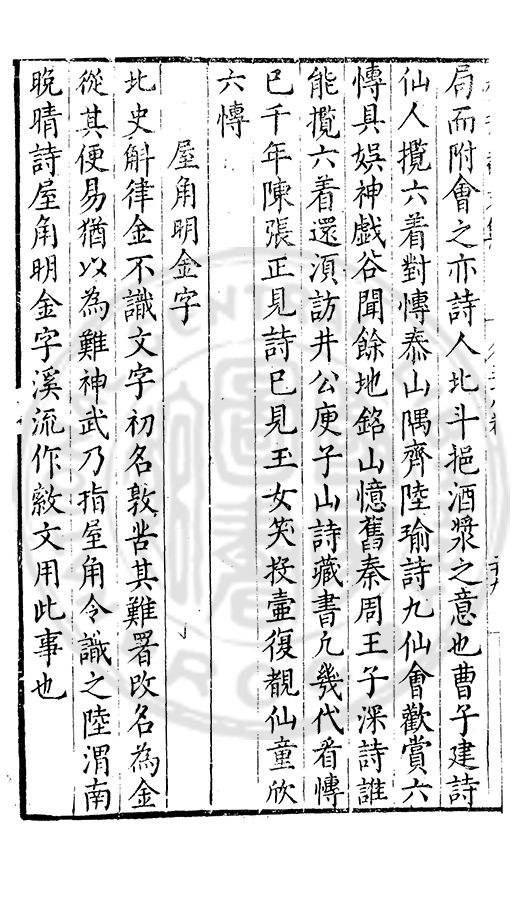 局而附會之亦詩人北斗挹酒漿之意也曹子建詩
仙人攬六着對愽泰山隅齊陸瑜詩九仙會歡賞六
愽具娯神戲谷聞餘地銘山憶舊秦周王子深詩誰
能攬六着還湏訪井公庾子山詩藏書凢幾代看愽
巳千年陳張正見詩巳見玉女笑投壷復覩仙童欣
六愽
屋角明金字
北史斛律金不識文字初名敦苦其難署改名為金
從其便易猶以為難神武乃指屋角令識之陸渭南
晩晴詩屋角明金字溪流作縠文用此事也